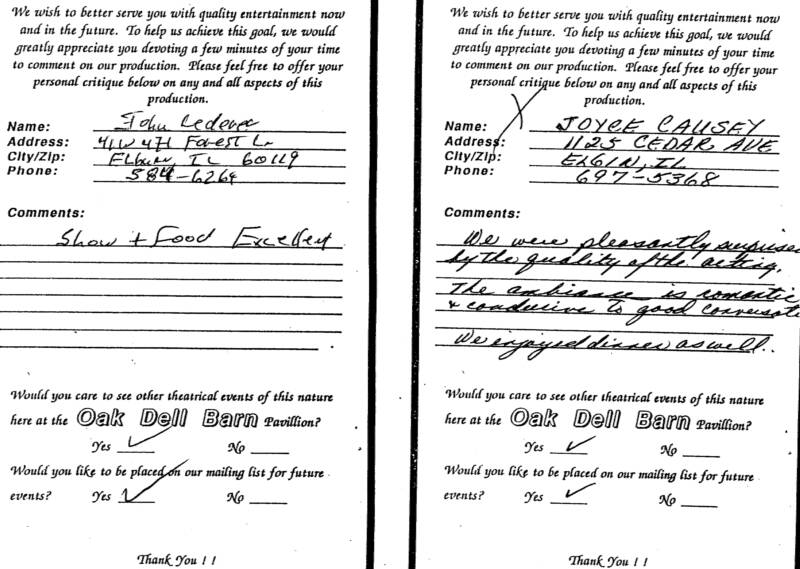 We wish to better serve you with quality entertainment now
and in the future. To help us achieve this goal, we would
greatly appreciate you devoting a few minutes of your time
to comment on our production. Please feel free to offer your
personal critique below on any and all aspects of this
production.
Name: John Lederer
Address: 41W471 Forest Ln
City/Zip: Elburn, IL 60119
Phone: 584-6264
Comments:
Show + Food Excellent
Would you care to see other theatrical events of this nature
here at the Oak Dell Barn Pavillion?
Yes ✓ No
Would you like to be placed on our mailing list for future
events? Yes ✓ No
Thank You ! !
We wish to better serve you with quality entertainment now
and in the future. To help us achieve this goal, we would
greatly appreciate you devoting a few minutes of your time
to comment on our production. Please feel free to offer your
personal critique below on any and all aspects of this
production.
Name: JOYCE CAUSEY
Address: 1125 CEDAR AVE
City/Zip: ELGIN, IL
Phone: 697-5368
Comments:
We were pleasantly surprise
by the quality of the acting.
The ambiance is romantic
& conducive to good conversati
We enjoyed dinner as well.
Would you care to see other theatrical events of this nature
here at the Oak Dell Barn Pavillion?
Yes ✓ No
Would you like to be placed on our mailing list for future
events? Yes ✓ No
Thank You ! !